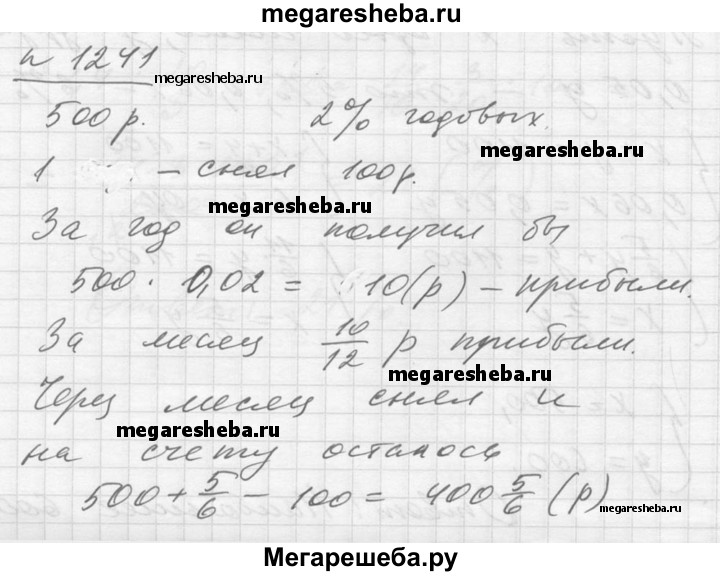 megaresheba.ru
n 1241
megaresheba.ru
500 р. 2% годовых.
megaresheba.ru
1 – снял 100р.
megaresheba.ru
За год он получил бы
500 · 0,02 = 10(р) – прибыли.
За месяц 10/12 р прибыли.
megaresheba.ru
Через месяц снял и
megaresheba.ru
на счету осталось
500 + 5/6 – 100 = 400 5/6 (р)
megaresheba.ru
Мегарешеба.ру